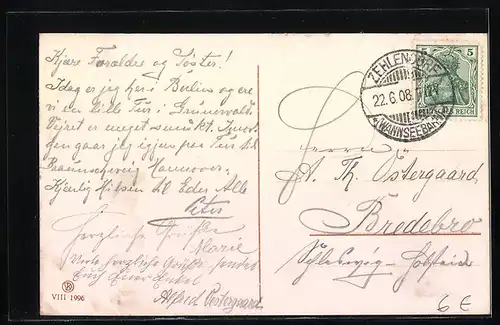 Kjære Forældre og Søster!
Idag er jeg her i Berlin og ere
vi en lille Tur i Grunewald.
Vejret er meget smukt. Imor-
gen gaar jeg igjen paa Tur til
Braunschweig Hannover.
Kjerlig Hilsen til Eder Alle
Peter
Herzliche Grüße
Marie
Viele herzliche Grüße sendet
Euch Euer Enkel
Alfred Østergaard
VIII 1996
ZEHLENDORF
22.6.08.
*(WANNSEEBAHN)
5 5
DEUTSCHES REICH
Herrn
A. Th. Østergaard
Bredebro
Schleswig-Holstein
6 €